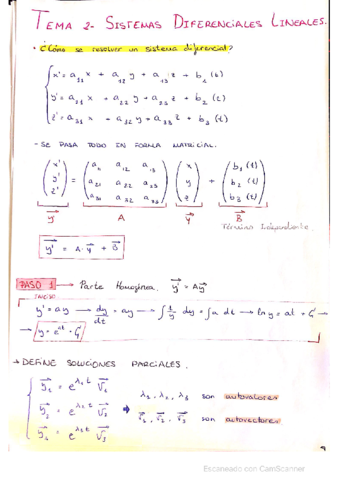 TEMA 2- SISTEMAS DIFERENCIALES LINEALES.
• ¿Cómo se resolver un sistema diferencial?
x' = a₁₁ x + a₁₂ y + a₁₃ z + b₁ (t)
y' = a₂₁ x + a₂₂ y + a₂₃ z + b₂ (t)
z' = a₃₁ x + a₃₂ y + a₃₃ z + b₃ (t)
- SE PASA TODO EN FORMA MATRICIAL.
(x') = (a₁₁ a₁₂ a₁₃) (x) + (b₁ (t))
(y') (a₂₁ a₂₂ a₂₃) (y) (b₂ (t))
(z') (a₃₀ a₃₂ a₃₃) (z) (b₃ (t))
y⃗' A y⃗ B⃗
Término Independiente.
y⃗' = A · y⃗ + B⃗
PASO 1 → Parte Homogénea. y⃗' = Ay⃗
y' = ay → dy/dt = ay → ∫ 1/y dy = ∫ a dt → ln y = at + C →
→ y = e^at + C
→ DEFINE SOLUCIONES PARCIALES.
y⃗₁ = e^λ₁t v⃗₁
λ₁, λ₂, λ₃ son autovalores
y⃗₂ = e^λ₂t v⃗₂ ⇒
v⃗₁, v⃗₂, v⃗₃ son autovectores
y⃗₃ = e^λ₃t v⃗₃
Escaneado con CamScanner